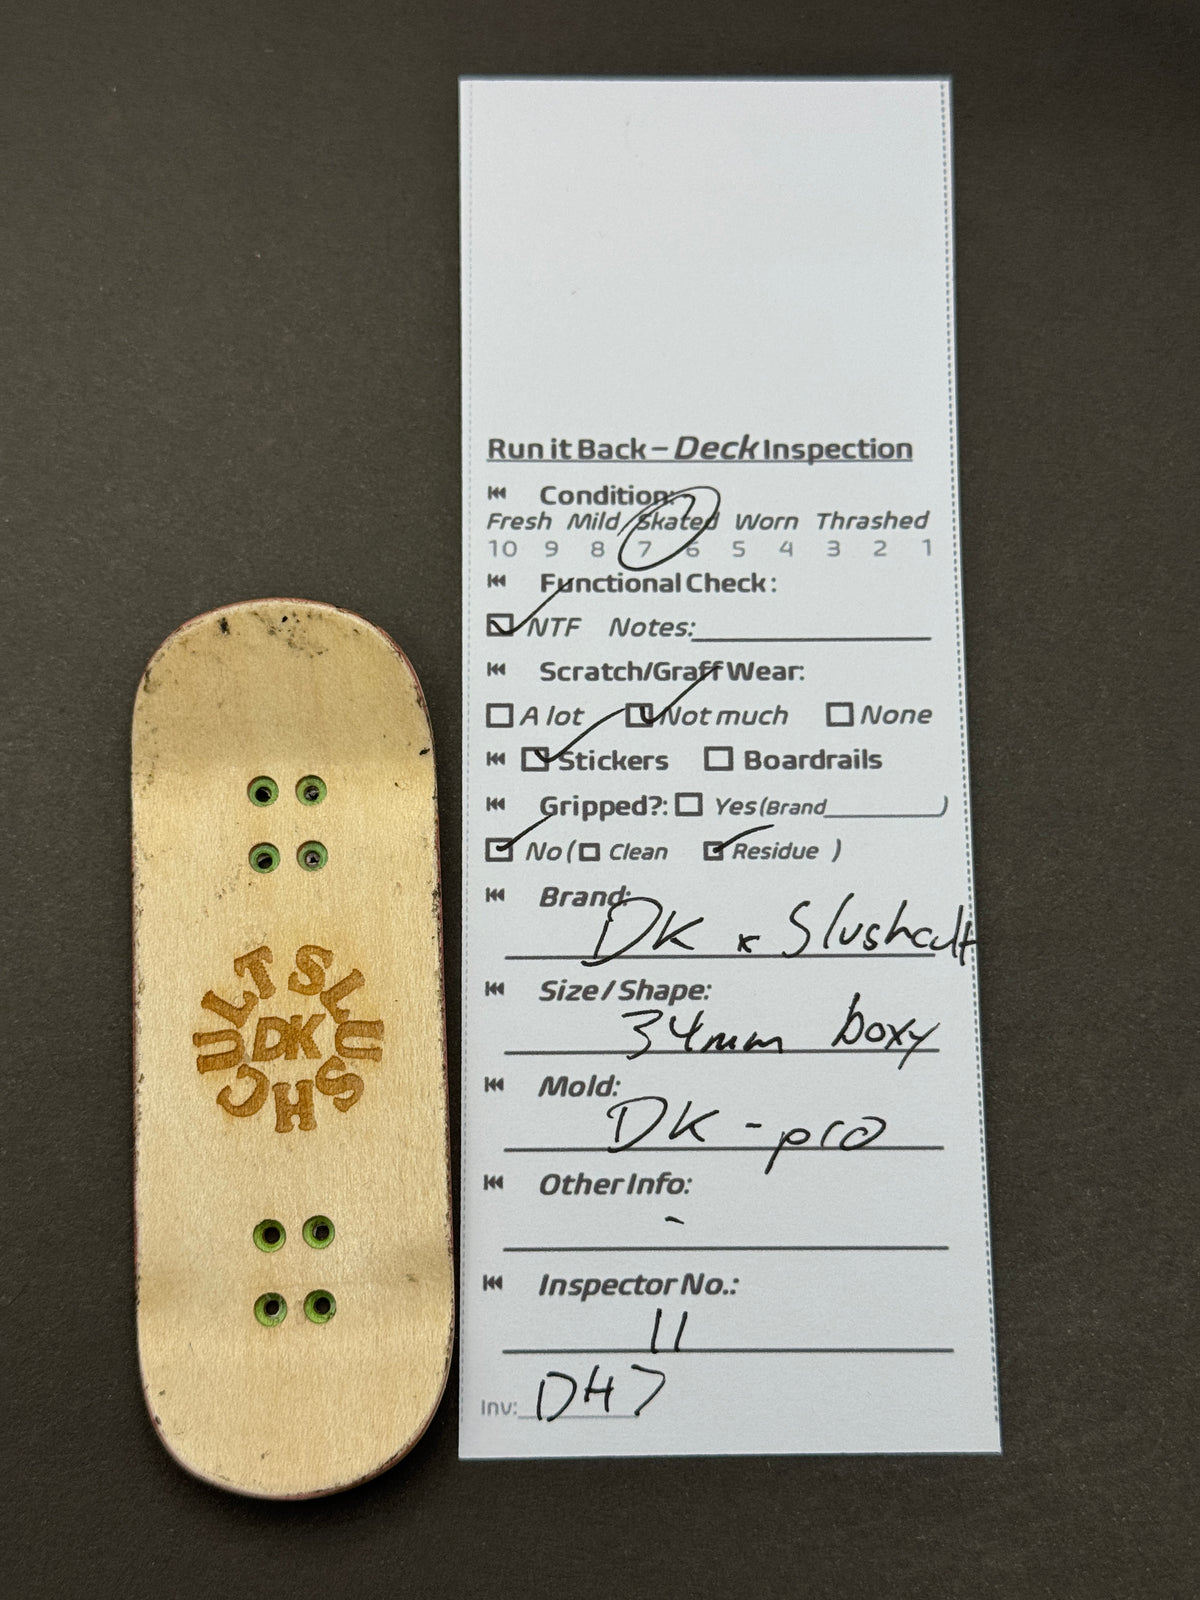 SLUSHCULT
DK
Run it Back – Deck Inspection
Condition:
Fresh Mild Skated Worn Thrashed
10 9 8 7 6 5 4 3 2 1
Functional Check:
NTF Notes:
Scratch/Graff Wear:
A lot Not much None
Stickers Boardrails
Gripped?: Yes (Brand )
No ( Clean Residue )
Brand:
DK x Slushcult
Size / Shape:
34mm boxy
Mold:
DK - pro
Other Info:
-
Inspector No.:
11
Inv: DH7